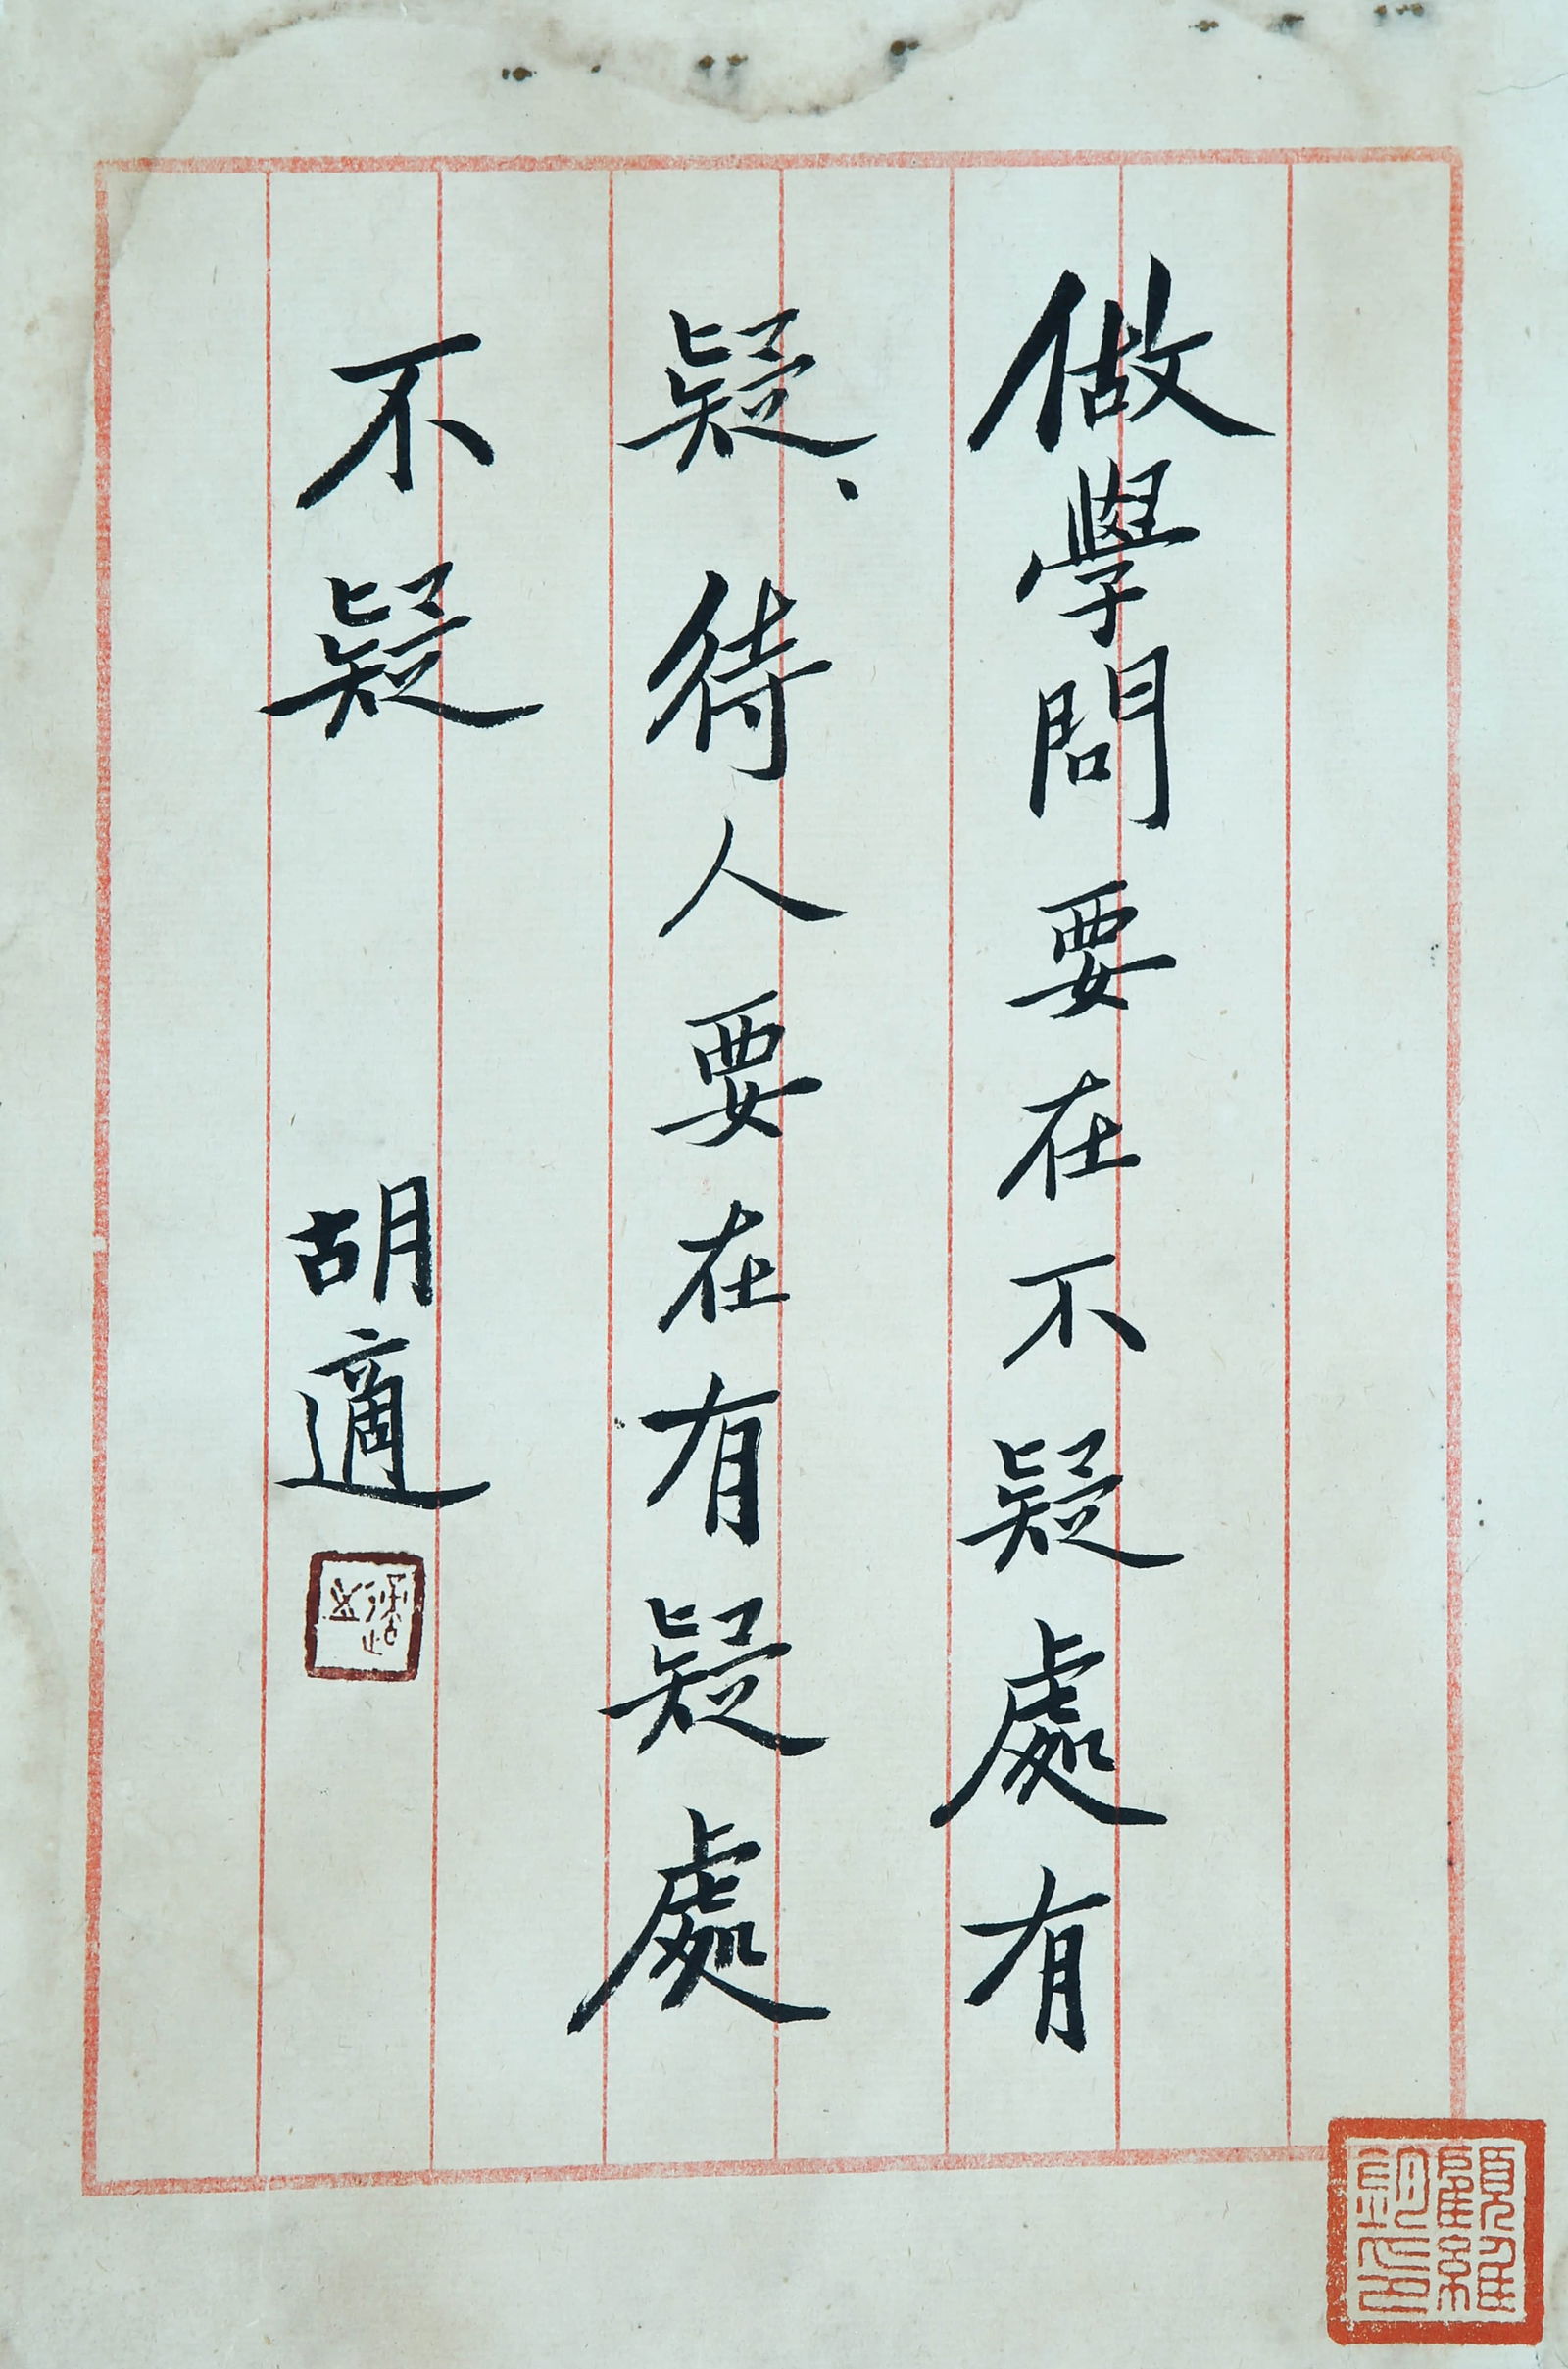 做學問要在不疑處有
疑、待人要在有疑處
不疑
胡適